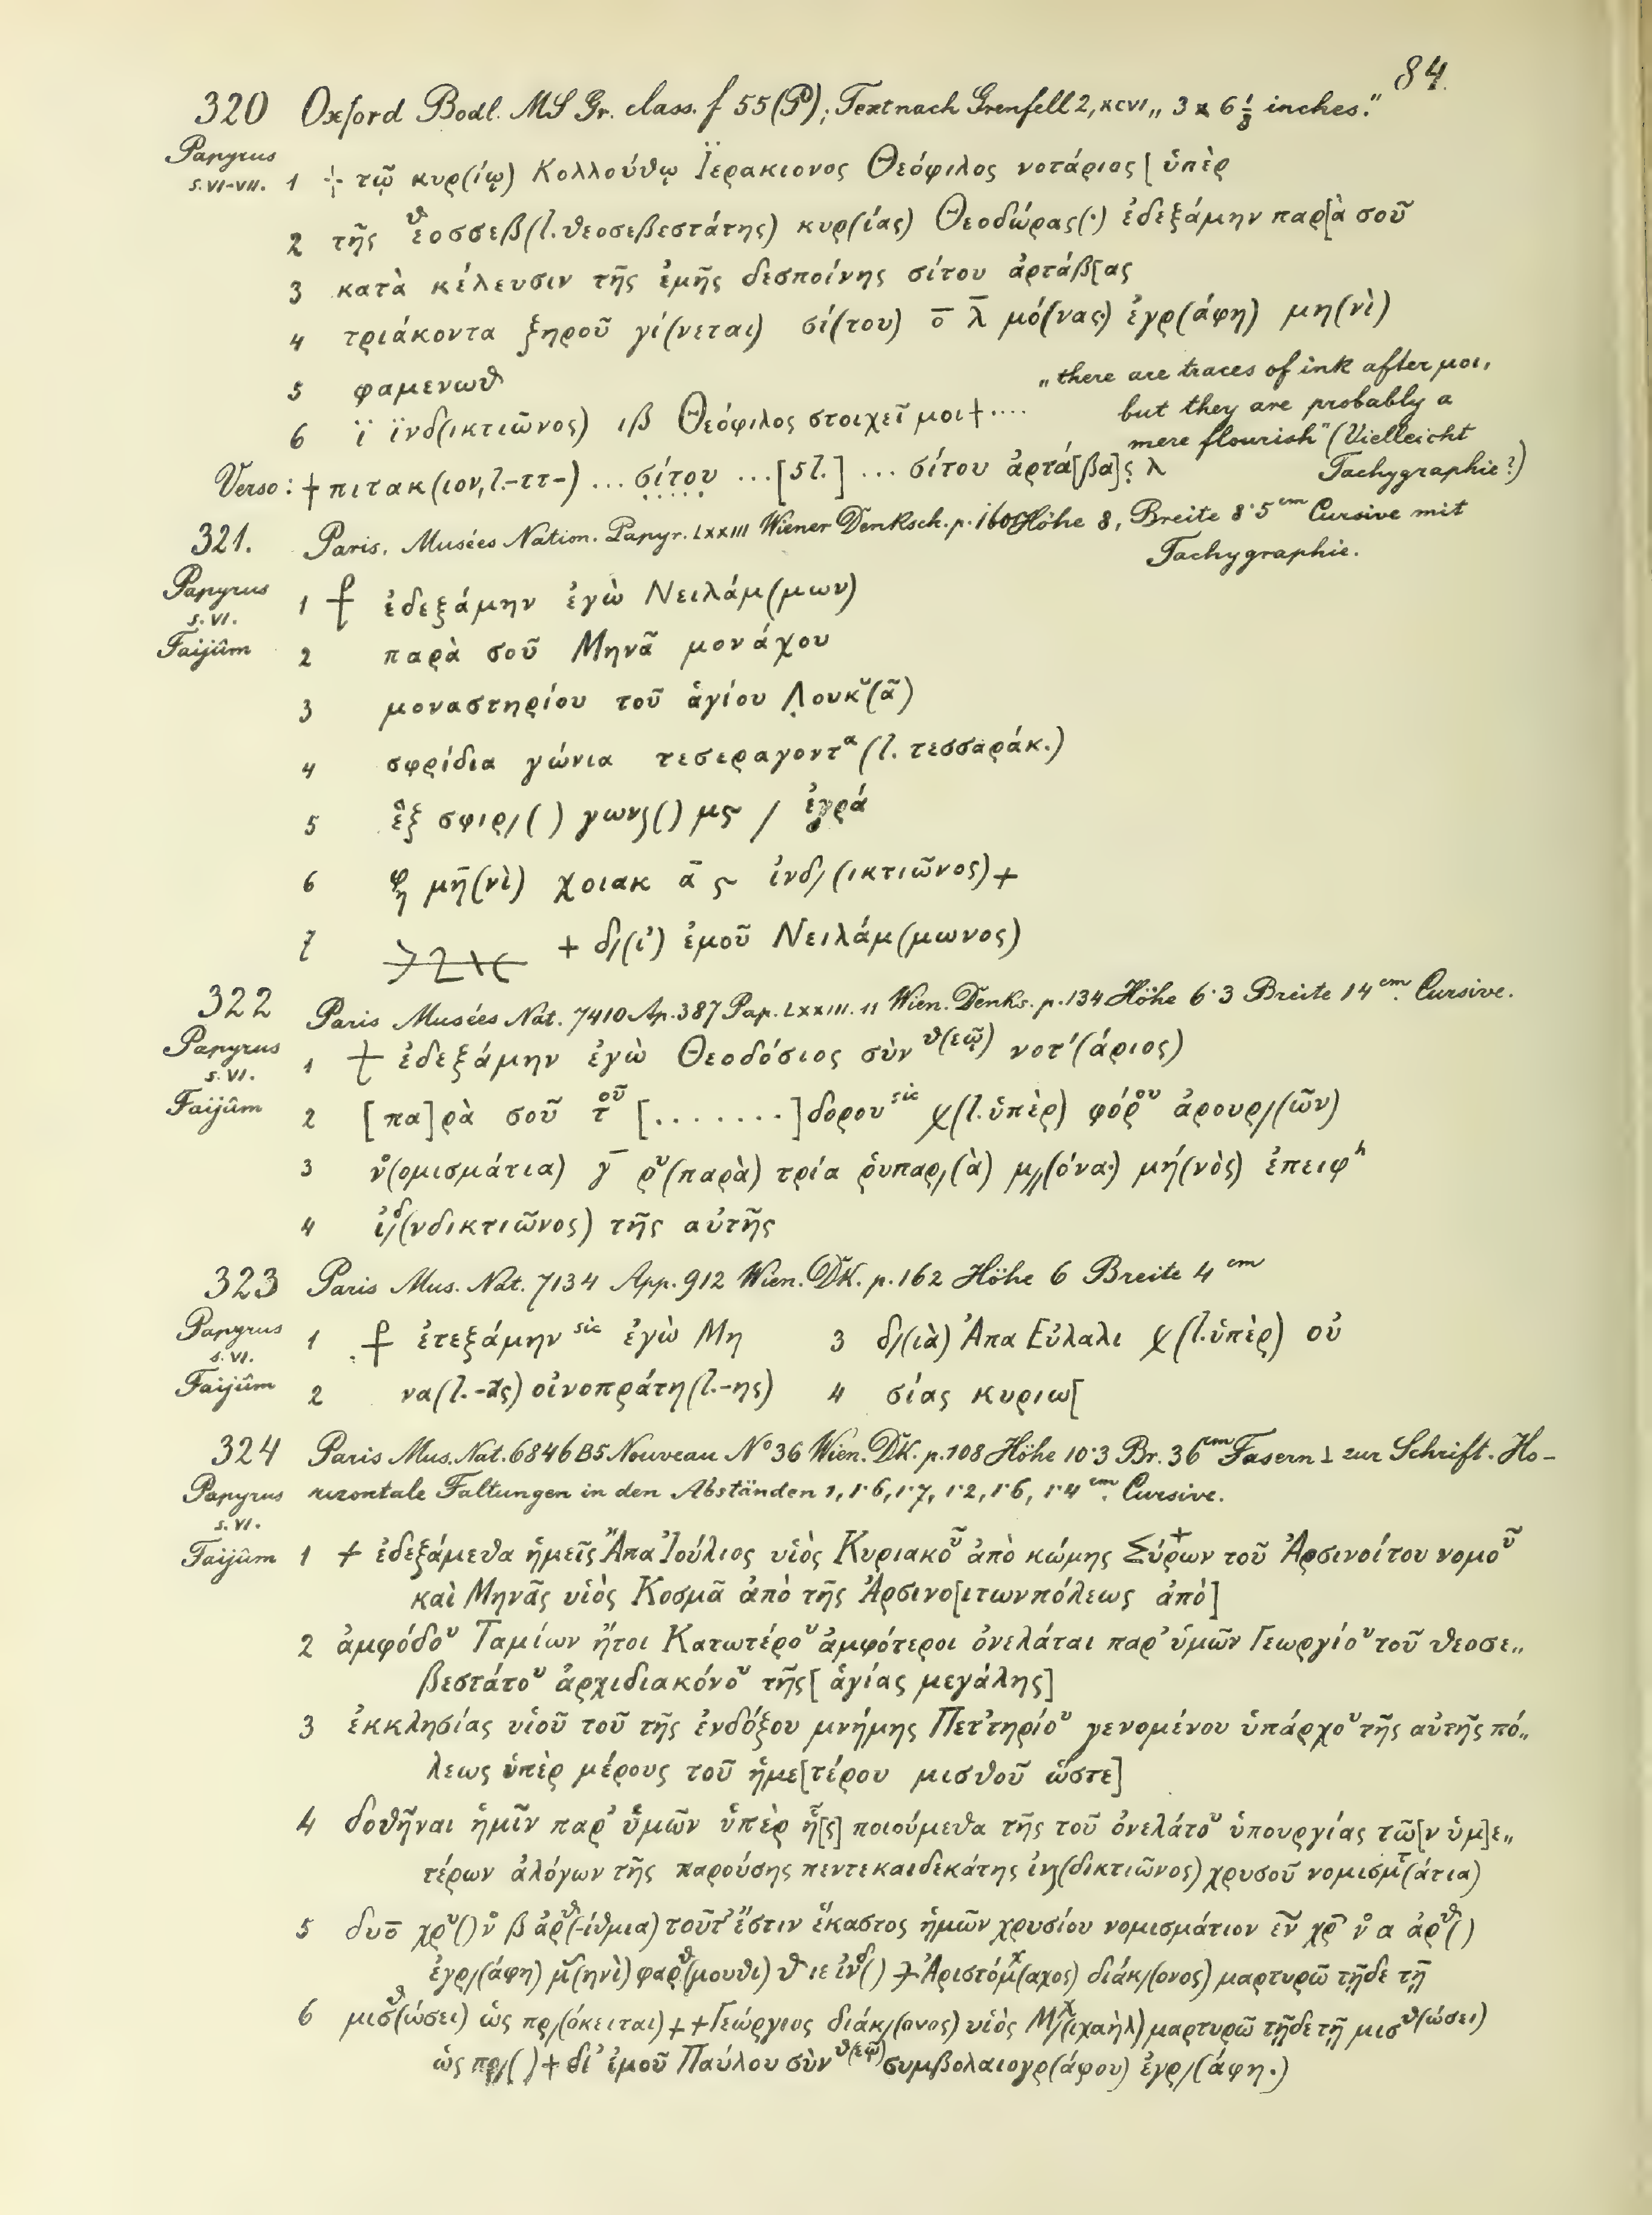 84.
320 Oxford Bodl. MS Gr. class. f 55 (P); Text nach Grenfell 2, XCVI „ 3 x 6 ⅓ inches."
Papyrus
s. VI-VII. 1 ⳨ τῷ κυρ(ίῳ) Κολλούθῳ Ϊερακιονος Θεόφιλος νοτάριος [ ὑπὲρ
2 τῆς θεοσσεβ(l. θεοσεβεστάτης) κυρ(ίας) Θεοδώρας(·) ἐδεξάμην παρ[ὰ σοῦ
3 κατὰ κέλευσιν τῆς ἐμῆς δεσποίνης σίτου ἀρτάβ[ας
4 τριάκοντα ξηροῦ γί(νεται) σί(του) ο̄ λ̄ μό(νας·) ἐγρ(άφη) μη(νὶ)
5 φαμενωθ
„there are traces of ink after μοι,
but they are probably a
mere flourish" (Vielleicht
Tachygraphie?)
6 ϊ ϊνδ(ικτιῶνος) ιβ Θεόφιλος στοιχεῖ μοι + ····
Verso: + πιτακ(ιον, l. -ττ-) ... σίτου ... [5 l.] ... σίτου ἀρτά[βα]ς λ
321. Paris. Musées Nation. Papyr. LXXIII Wiener Denksch. p. 160 Höhe 8, Breite 8·5 cm Cursive mit
Tachygraphie.
Papyrus
s. VI.
Faijûm
1 ⳨ ἐδεξάμην ἐγὼ Νειλάμ(μων)
2 παρὰ σοῦ Μηνᾶ μονάχου
3 μοναστηρίου τοῦ ἁγίου Λουκ(ᾶ)
4 σφρίδια γώνια τεσεραγοντα (l. τεσσαράκ.)
5 ἓξ σφιρ/( ) γων ( ) μϛ / ἐγρά
6 φη μη(νὶ) χοιακ ᾱ ϛ ἰνδ/(ικτιῶνος) +
7 + δ/(ι') ἐμοῦ Νειλάμ(μωνος)
322 Paris Musées Nat. 7410 Ap. 387 Pap. LXXIII. 11 Wien. Denks. p. 134 Höhe 6·3 Breite 14 cm. Cursive.
Papyrus
s. VI.
Faijûm
1 + ἐδεξάμην ἐγὼ Θεοδόσιος σὺν θ(εῷ) νοτ'(άριος)
2 [πα]ρὰ σοῦ τοῦ [.......]δορου sic χ(l. ὑπὲρ) φόρου ἀρουρ/(ῶν)
3 ν(ομισμάτια) γ̄ ρυ(παρὰ) τρία ῥυπαρ/(ὰ) μ//(όνα·) μή(νὸς) ἐπειφh
4 ἰδ/(νδικτιῶνος) τῆς αὐτῆς
323 Paris Mus. Nat. 7134 App. 912 Wien. DK. p. 162 Höhe 6 Breite 4 cm
Papyrus
s. VI.
Faijûm
1 ⳨ ἐτεξάμην sic ἐγὼ Μη
2 να (l. -ᾶς) οἰνοπράτη (l. -ης)
3 δ/(ιὰ) Ἀπα Εὐλαλι χ(l. ὑπὲρ) οὐ
4 σίας κυριω[
324 Paris Mus. Nat. 6846 B5 Nouveau No 36 Wien. DK. p. 108 Höhe 10·3 Br. 36 cm Fasern ⊥ zur Schrift. Ho-
rizontale Faltungen in den Abständen 1, 1·6, 1·7, 1·2, 1·6, 1·4 cm. Cursive.
Papyrus
s. VI.
Faijûm
1 + ἐδεξάμεθα ἡμεῖς Ἄπα Ἰούλιος υἱὸς Κυριακοῦ ἀπὸ κώμης Σύρων τοῦ Ἀρσινοίτου νομοῦ
καὶ Μηνᾶς υἱὸς Κοσμᾶ ἀπὸ τῆς Ἀρσινο[ιτωνπόλεως ἀπὸ]
2 ἀμφόδου Ταμίων ἤτοι Κατωτέρου ἀμφότεροι ὀνελάται παρ' ὑμῶν Γεωργίου τοῦ θεοσε„
βεστάτου ἀρχιδιακόνου τῆς [ ἁγίας μεγάλης]
3 ἐκκλησίας υἱοῦ τοῦ τῆς ἐνδόξου μνήμης Πετ'τηρίου γενομένου ὑπάρχου τῆς αὐτῆς πό„
λεως ὑπὲρ μέρους τοῦ ἡμε[τέρου μισθοῦ ὥστε]
4 δοθῆναι ἡμῖν παρ' ὑμῶν ὑπὲρ ἧ[ς] ποιούμεθα τῆς τοῦ ὀνελάτου ὑπουργίας τῶ[ν ὑμ]ε„
τέρων ἀλόγων τῆς παρούσης πεντεκαιδεκάτης ἰν(δικτιῶνος) χρυσοῦ νομισμτ(άτια)
5 δυο̄ χρυ( ) ν β ἀρθ(-ίθμια) τοῦτ' ἔστιν ἕκαστος ἡμῶν χρυσίου νομισμάτιον ἓν χρ ν α ἀρθ( )
ἐγρ/(άφη) μ(ηνὶ) φαρθ(μουθι) θ ιε ἰνδ( ) + Ἀριστόμχ(αχος) διάκ/(ονος) μαρτυρῶ τῇδε τῇ
6 μισθ(ώσει) ὡς πρ/(όκειται) + + Γεώργιος διάκ/(ονος) υἱὸς Μχ/(ιχαὴλ) μαρτυρῶ τῇδε τῇ μισθ(ώσει)
ὡς πρ/( ) + δι' ἐμοῦ Παύλου σὺν θ(εῷ) συμβολαιογρ(άφου) ἐγρ/(άφη.)